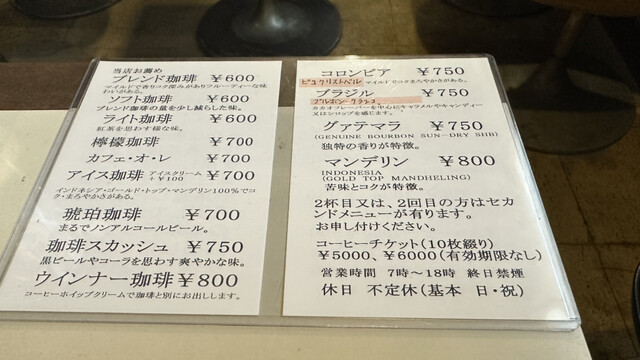 当店お薦め
ブレンド珈琲 ￥600
マイルドで香りコク深みがありフルーティーな味わいがある。
ソフト珈琲 ￥600
ブレンド珈琲の量を少し減らした味。
ライト珈琲 ￥600
紅茶を思わす様な味。
檸檬珈琲 ￥700
カフェ・オ・レ ￥700
アイス珈琲 アイスクリーム ＋￥100 ￥700
インドネシア・ゴールド・トップ・マンデリン100％でコク・まろやかさがある。
琥珀珈琲 ￥700
まるでノンアルコールビール。
珈琲スカッシュ ￥750
黒ビールやコーラを思わす爽やかな味。
ウインナー珈琲 ￥800
コーヒーホイップクリームで珈琲と別にお出しします。
コロンビア ￥750
マイルドでコクまろやかさがある。
ブラジル ￥750
カカオフレーバーを中心にキャラメルやキャンディー
又はシロップを感じます。
グァテマラ ￥750
(GENUINE BOURBON SUN-DRY SHB)
独特の香りが特徴。
マンデリン ￥800
INDONESIA
(GOLD TOP MANDHELING)
苦味とコクが特徴。
2杯目又は、2回目の方はセカ
ンドメニューが有ります。
お申し付けください。
コーヒーチケット(10枚綴り)
￥5000、￥6000(有効期限なし)
営業時間 7時～18時 終日禁煙
休日 不定休(基本 日・祝)